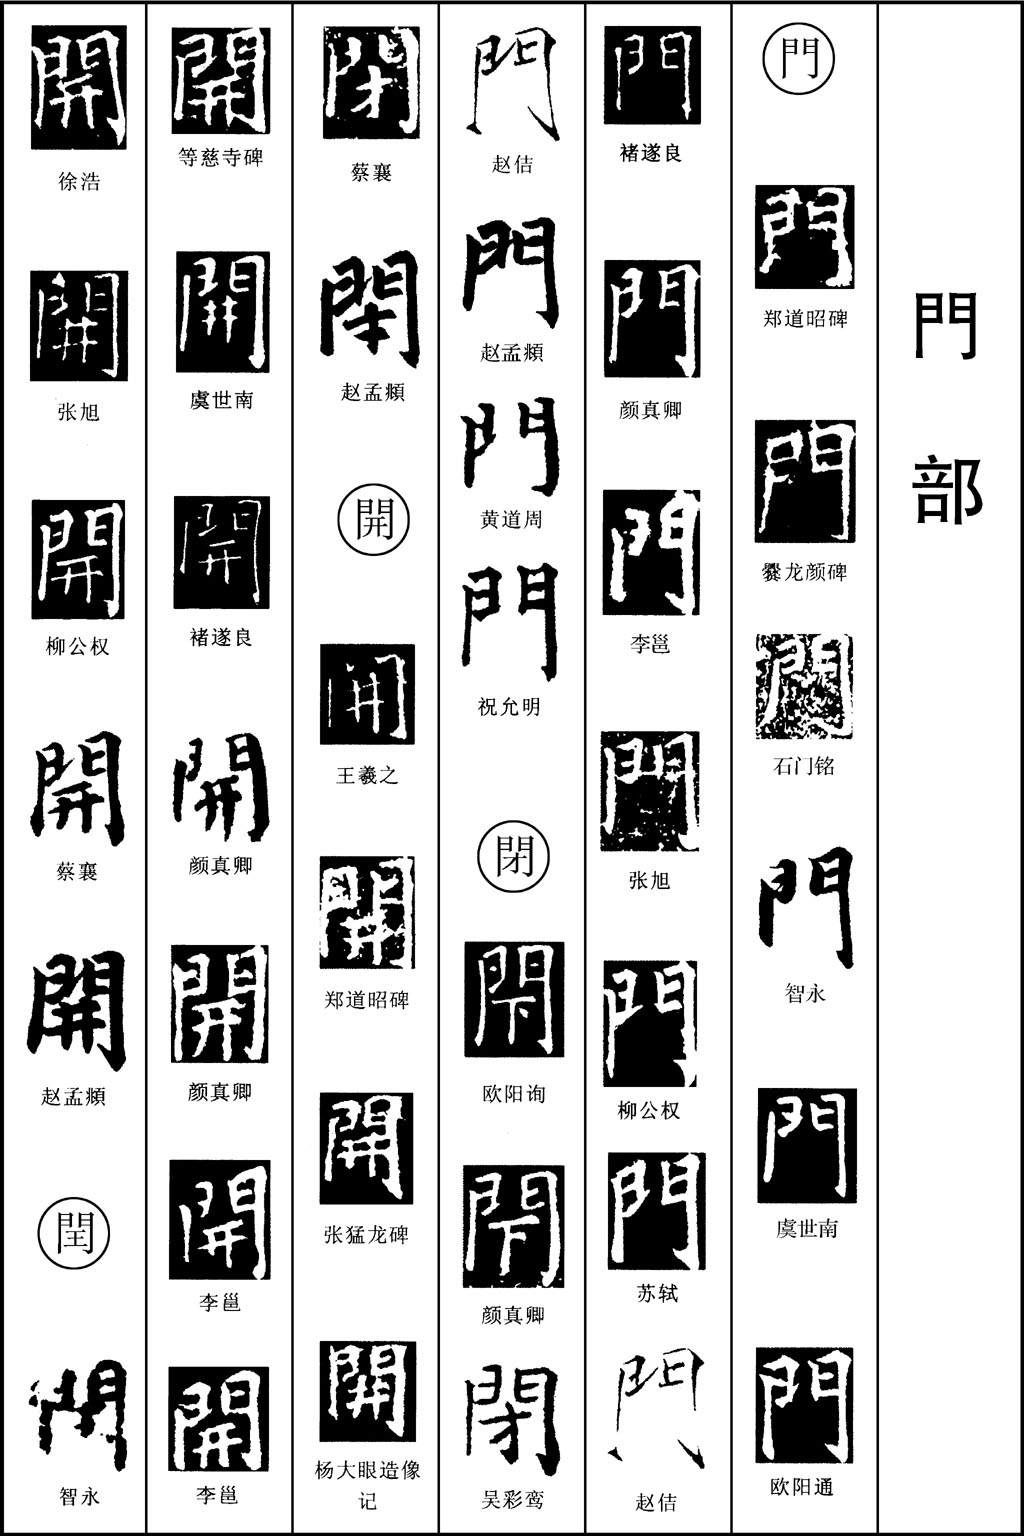 門部
門
門
郑道昭碑
門
爨龙颜碑
門
石门铭
門
智永
門
虞世南
門
欧阳通
門
褚遂良
門
颜真卿
門
李邕
門
张旭
門
柳公权
門
苏轼
門
赵佶
門
赵佶
門
赵孟頫
門
黄道周
門
祝允明
閉
閇
欧阳询
閇
颜真卿
閉
吴彩鸾
閉
蔡襄
閉
赵孟頫
開
開
王羲之
開
郑道昭碑
開
张猛龙碑
開
杨大眼造像
记
開
等慈寺碑
開
虞世南
開
褚遂良
開
颜真卿
開
颜真卿
開
李邕
開
李邕
開
徐浩
開
张旭
開
柳公权
開
蔡襄
開
赵孟頫
閏
閏
智永